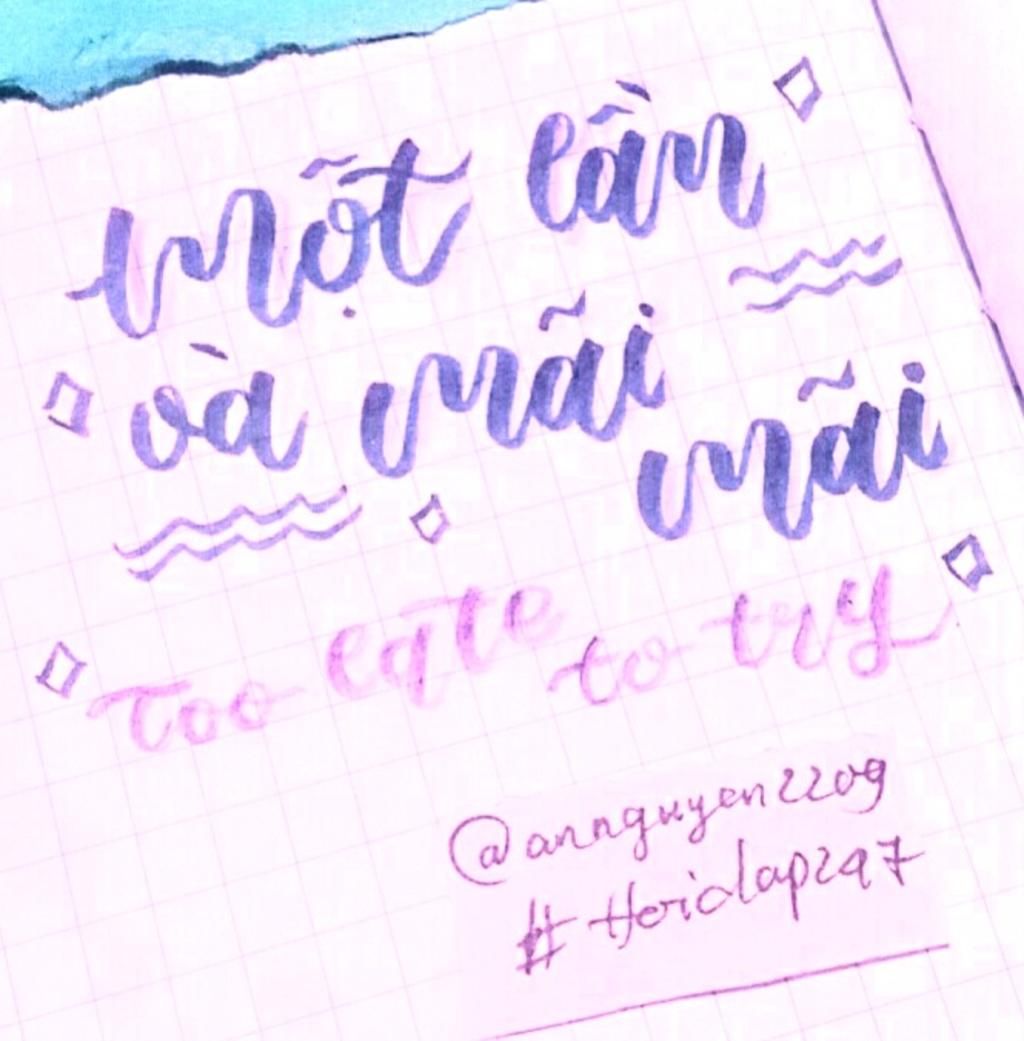 một lần
và mãi mãi
Too late to try
@annguyen2209
#Hoidap247